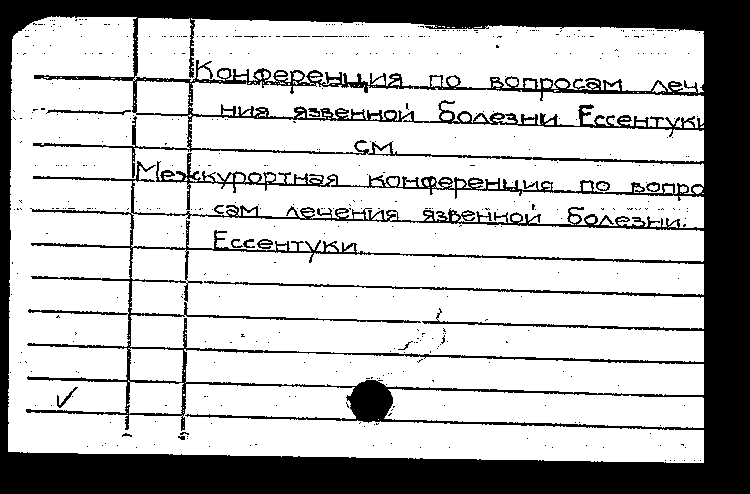 Конференция по вопросам лече
ния язвенной болезни Ессентуки
см.
Межкурортная конференция по вопро
сам лечения язвенной болезни.
Ессентуки.